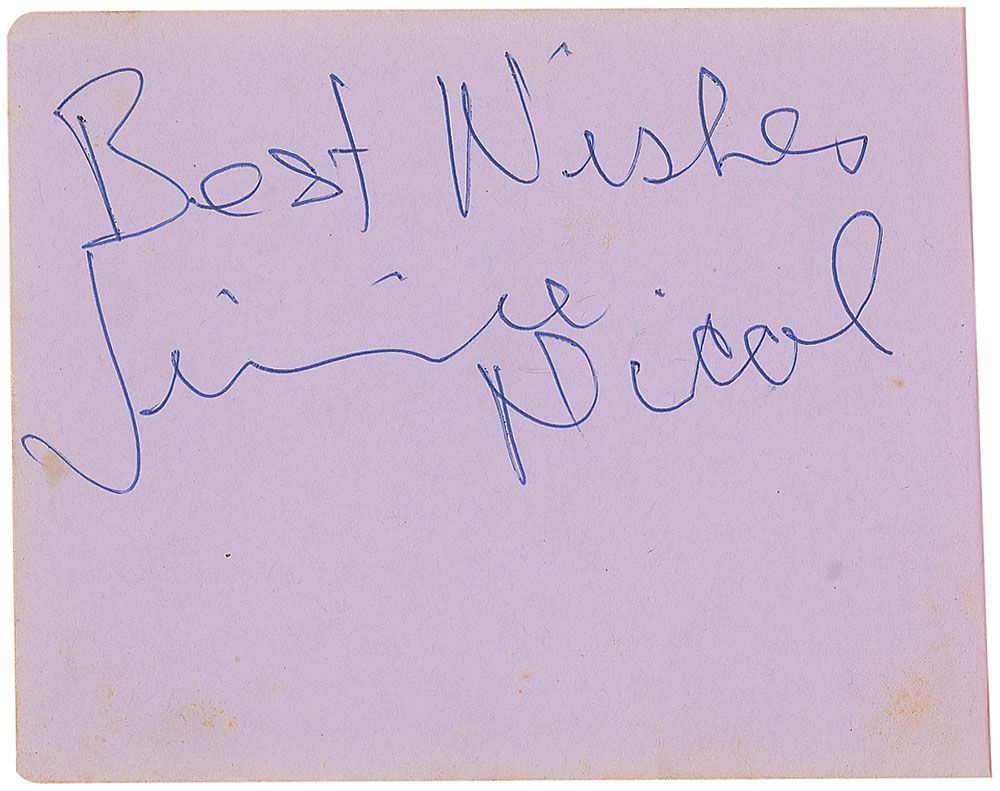 Best Wishes
Jimmie
Nicol